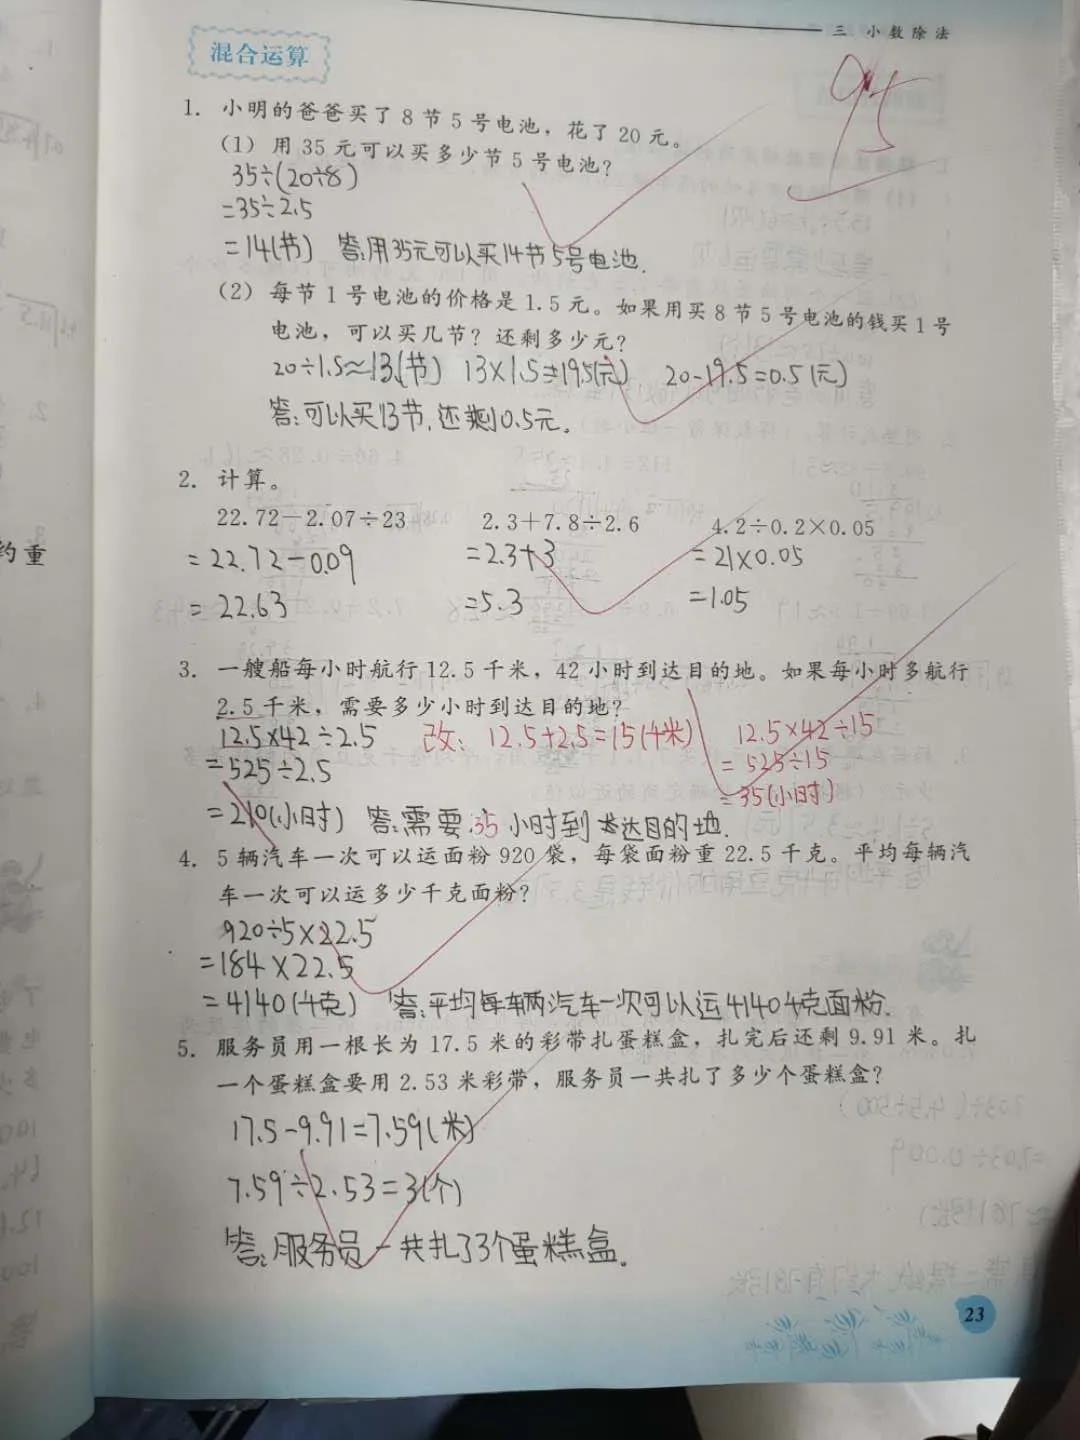 三 小数除法
混合运算
95
1. 小明的爸爸买了8节5号电池，花了20元。
(1) 用35元可以买多少节5号电池？
35÷(20÷8)
=35÷2.5
=14(节) 答:用35元可以买14节5号电池.
(2) 每节1号电池的价格是1.5元。如果用买8节5号电池的钱买1号
电池，可以买几节？还剩多少元？
20÷1.5≈13(节) 13×1.5=19.5(元) 20-19.5=0.5(元)
答:可以买13节,还剩0.5元.
2. 计算。
22.72-2.07÷23 2.3+7.8÷2.6 4.2÷0.2×0.05
=22.72-0.09 =2.3+3 =21×0.05
=22.63 =5.3 =1.05
3. 一艘船每小时航行12.5千米，42小时到达目的地。如果每小时多航行
2.5千米，需要多少小时到达目的地？
12.5×42÷2.5 改: 12.5+2.5=15(千米) 12.5×42÷15
=525÷2.5 =525÷15
=210(小时) 答:需要35小时到达目的地. =35(小时)
4. 5辆汽车一次可以运面粉920袋，每袋面粉重22.5千克。平均每辆汽
车一次可以运多少千克面粉？
920÷5×22.5
=184×22.5
=4140(千克) 答:平均每辆汽车一次可以运4140千克面粉.
5. 服务员用一根长为17.5米的彩带扎蛋糕盒，扎完后还剩9.91米。扎
一个蛋糕盒要用2.53米彩带，服务员一共扎了多少个蛋糕盒？
17.5-9.91=7.59(米)
7.59÷2.53=3(个)
答:服务员一共扎了3个蛋糕盒.
23
约重